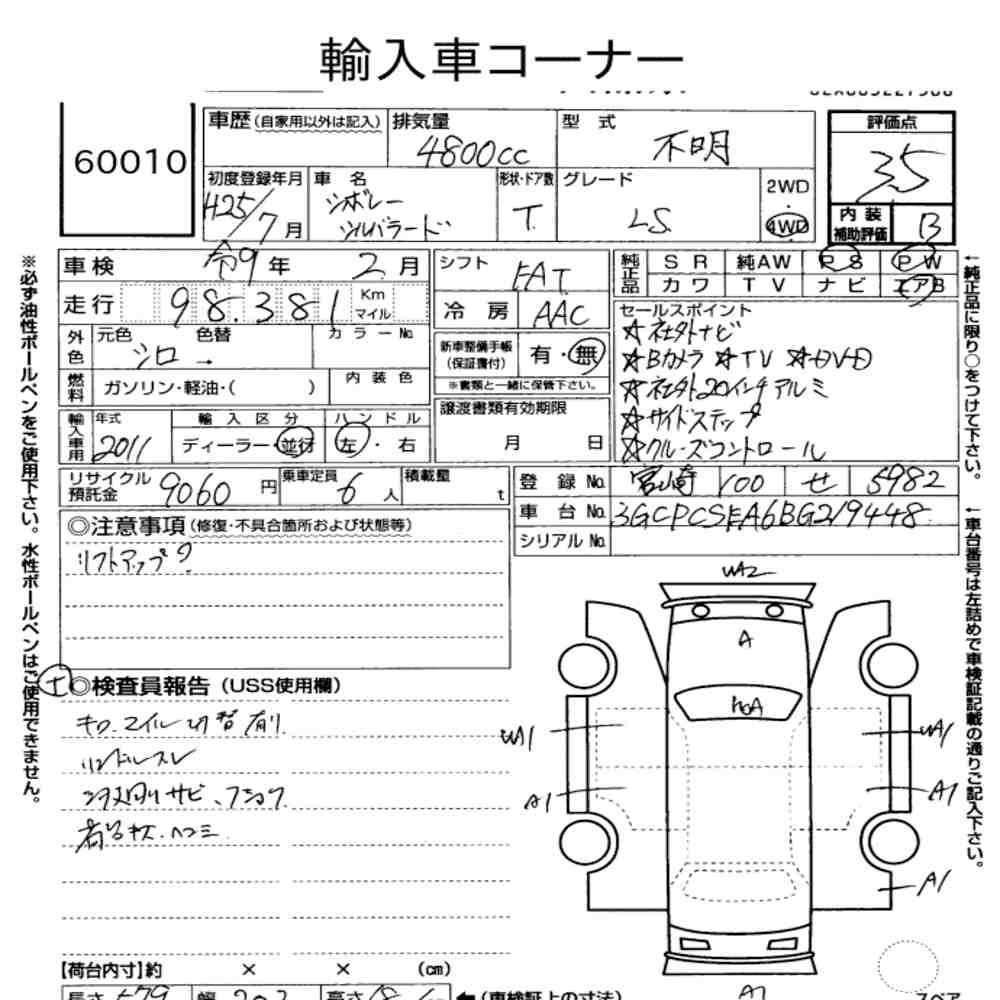 輸入車コーナー
60010
車歴 (自家用以外は記入)
排気量 4800cc
型式 不明
評価点 3.5
内装補助評価 B
初度登録年月 H25/7月
車名 シボレー シルバラード
形状・ドア数 T.
グレード LS
2WD・4WD
車検 令9年 2月
走行 98.381 Km マイル
シフト FAT
冷房 AAC
純正品 SR 純AW PS PW
カワ TV ナビ エアB
外色 元色 シロ → 色替 カラーNo.
燃料 ガソリン・軽油・( ) 内装色
新車整備手帳(保証書付) 有・無
※書類と一緒に保管下さい。
譲渡書類有効期限 月 日
セールスポイント
☆社外ナビ
☆Bカメラ ☆TV ☆DVD
☆社外20インチアルミ
☆サイドステップ
☆クルーズコントロール
輸入車用 年式 2011
輸入区分 ディーラー・並行
ハンドル 左・右
リサイクル預託金 9060円
乗車定員 6人
積載量 t
登録No. 宮崎 100 せ 5982
車台No. 3GCPCSEA6BG219448
シリアルNo.
◎注意事項 (修復・不具合箇所および状態等)
リフトアップ?
◎検査員報告 (USS使用欄)
キロ、マイル切替有り
ハンドルスレ
サビ、フショク
荷台キズ・ヘコミ
WA2
A
A
WA1
WA1
A1
A1
A1
【荷台内寸】約 × × (cm)
長さ 579 幅 203 高さ
←(車検証上の寸法)
スペア
※必ず油性ボールペンをご使用下さい。水性ボールペンはご使用できません。
←純正品に限り○をつけて下さい。
←車台番号は左詰めで車検証記載の通りご記入下さい。